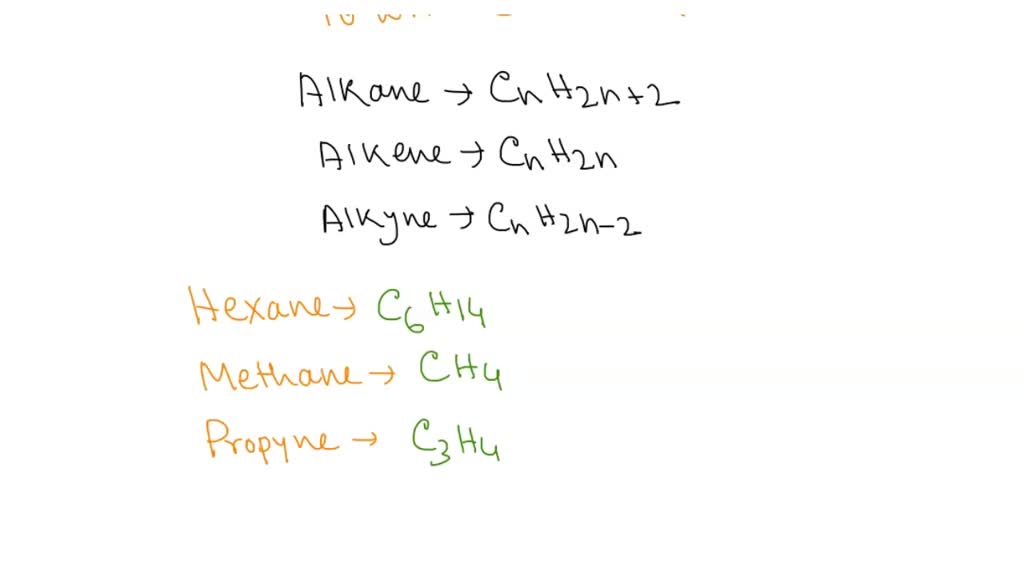 Alkane → CnH2n+2
Alkene → CnH2n
Alkyne → CnH2n-2
Hexane → C6H14
Methane → CH4
Propyne → C3H4